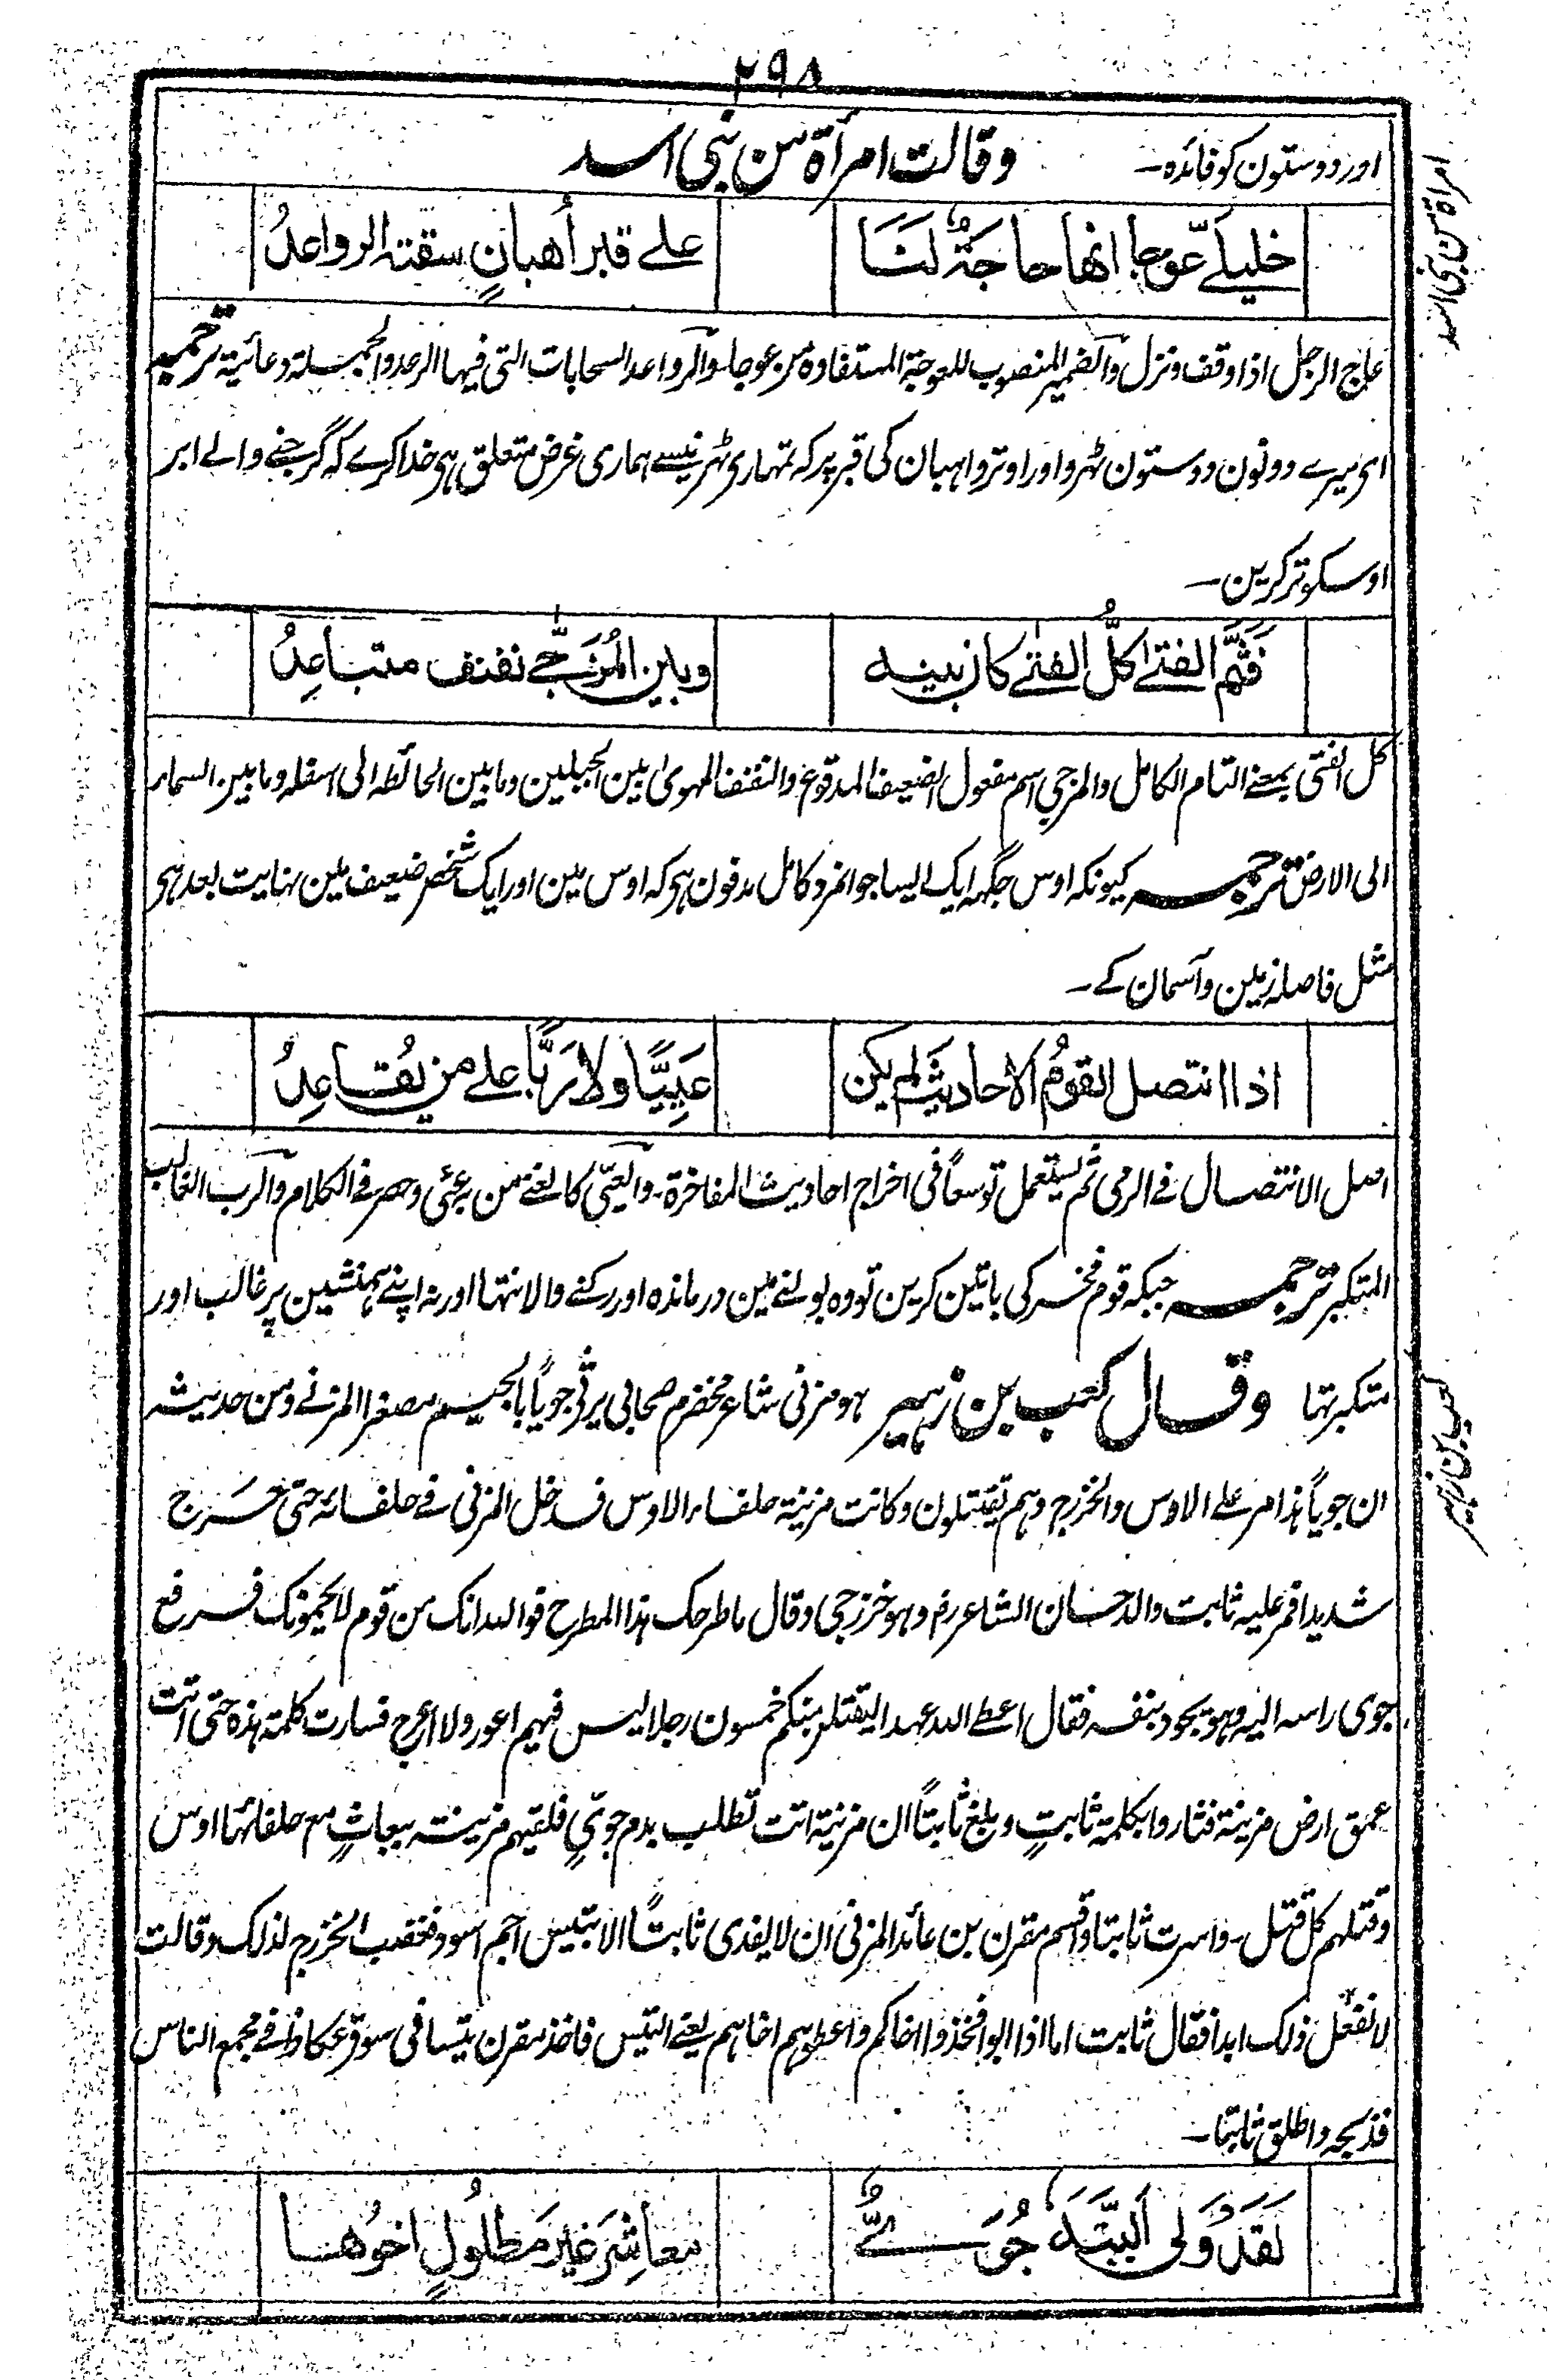 ۲۹۸
اور دوستون کو فائدہ۔ وقالت امرأة من بنی اسد
امرأة من بنی اسد
خلیلے عوجا انھا حاجۃٌ لَنَا علے قبر أھبانٍ سقتہ الرواعدُ
عاج الرجل اذا وقف ونزل والضمیر المنصوب للعوجۃ المستفادۃ من عوجا والرواعد السحابات التی فیہا الرعد والجملۃ دعائیۃ ترجمہ
ای میرے دونون دوستون ٹہرو اور اوترو اہبان کی قبر پر کہ تمہاری ٹہرنیسے ہماری غرض متعلق ہی خدا کرے کہ گرجنے والے ابر
اوسکو تر کرین۔
فَثَمَّ الفتے کلُّ الفتے کان بینہ وبین المُزَجّٰے نفنف متباعِدُ
کل الفتی بمعنے التام الکامل والمزجی اسم مفعول الضعیف المدفوع والنفنف المہویٰ بین الجبلین وما بین الحائط الی اسفلہ وما بین السماء
الی الارض ترجمہ کیونکہ اوس جگہہ ایک ایسا جوانمرد کامل مدفون ہی کہ اوس مین اور ایک شخص ضعیف مین نہایت بعد ہی
مثل فاصلہ زمین وآسمان کے۔
اذا انتصل القومُ الاحادیثَ لم یکن عَیِیًّا ولا رَبًّا علے من یُقاعِدُ
اصل الانتصال فے الرمی ثم یستعمل توسعاً فی اخراج احادیث المفاخرۃ۔ والعیّی کالغنے من بہ عیّ وحصر فے الکلام والرب الغالب
المتکبر ترجمہ جبکہ قوم فخر کی باتین کرین تو وہ بولنے مین درماندہ اور رکنے والا نتہا اور نہ اپنے ہمنشین پر غالب اور
متکبر تہا وقال کعب بن زہیر ہو مزنی شاعر مخضرم صحابی یرثی جویاً بالجیم مصغرا المزنے ومن حدیثہ
کعب بن زہیر
ان جویاً ہذا مر علے الاوس والخزرج وہم یقتتلون وکانت مزینۃ حلفاء الاوس فدخل المزنی فے حلفائہ حتی خَرج
شدیدا فمر علیہ ثابت والد حسان الشاعر رض وہو خزرجی وقال ما طرحک ہذا المطرح فواللہ انک من قوم لا یحمونک فرفع
جوی راسہ الیہ وہو یجود بنفسہ فقال اعطے اللہ عہدا لیقتلن منکم خمسون رجلا لیس فیہم اعور ولا اعرج فسارت کلمتہ ہذہ حتی اتت
عمق ارض مزینۃ فثاروا بکلمۃ ثابتٍ وبلغ ثابتاً ان مزینۃ اتت تطلب بدم جویٍّ فلقیہم مزینۃ ببعاثٍ مع حلفائہا اوس
وقتلہم کل قتل۔ واسرت ثابتا واقسم مقرن بن عائد المزنی ان لا یفدی ثابتاً الا بتیس اجم اسود فغضب الخزرج لذلک وقالت
لا نفعل ذلک ابدا فقال ثابت اما اذا ابوا فخذوا اخاکم واعطوہم اخاہم یعنے التیس فاخذ مقرن تیسا فی سوق عکاظ فے مجمع الناس
فذبحہ واطلق ثابتا۔
لَقَدْ وَلی اَلِیَّتَہٗ جُوَیٌّ معاشِرَ غیرَ مَطلُولٍ اخُوھا